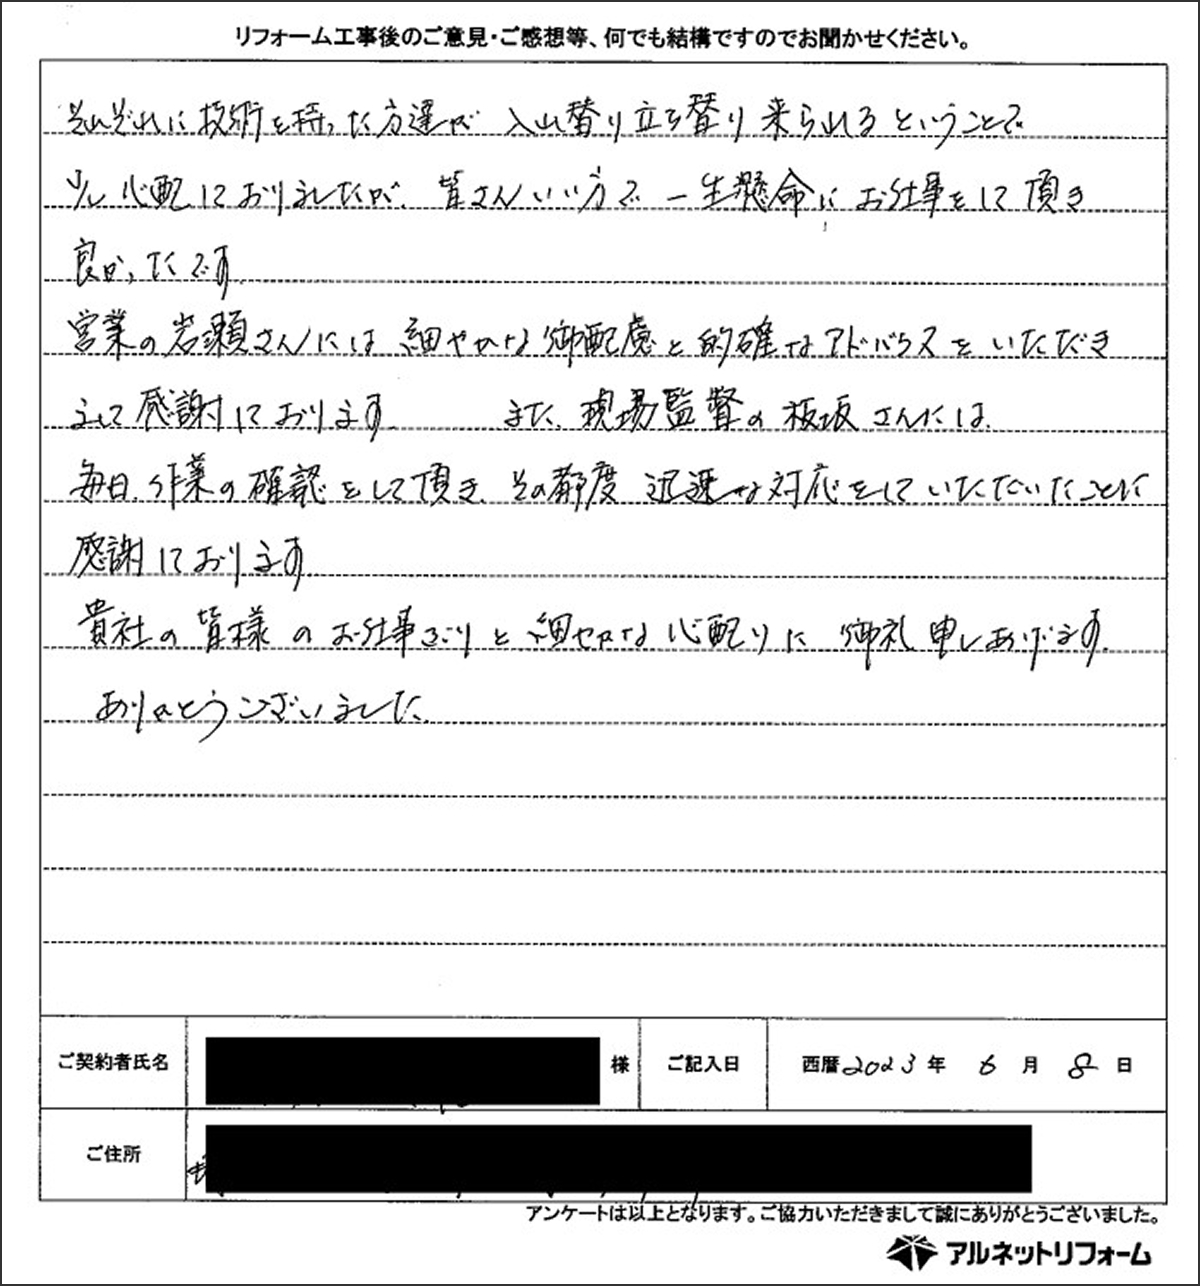 リフォーム工事後のご意見・ご感想等、何でも結構ですのでお聞かせください。
それぞれに技術を持った方達が 入れ替り立ち替り来られるということで
少し心配しておりましたが、皆さんいい方で 一生懸命にお仕事をして頂き
良かったです。
営業の岩瀬さんには 細やかな御配慮と的確なアドバイスをいただき
まして感謝しております。 また、現場監督の板坂さんには、
毎日、作業の確認をして頂き、その都度 迅速な対応をしていただいたことに
感謝しております。
貴社の皆様のお仕事ぶりと細やかな心配りに 御礼申しあげます。
ありがとうございました。
ご契約者氏名 様 ご記入日 西暦2023年 6月 8日
ご住所
アンケートは以上となります。ご協力いただきまして誠にありがとうございました。
アルネットリフォーム